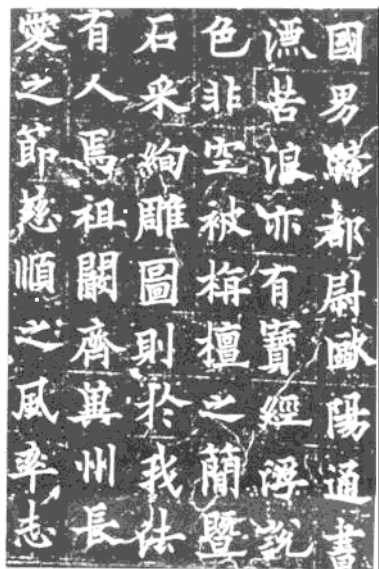 國男騎都尉歐陽通書
漂苦浪亦有寶經浮說
色非空被栴檀之簡暨
石采絢雕圖則於我法
有人焉祖闞齊冀州長
愛之節慈順之風率志